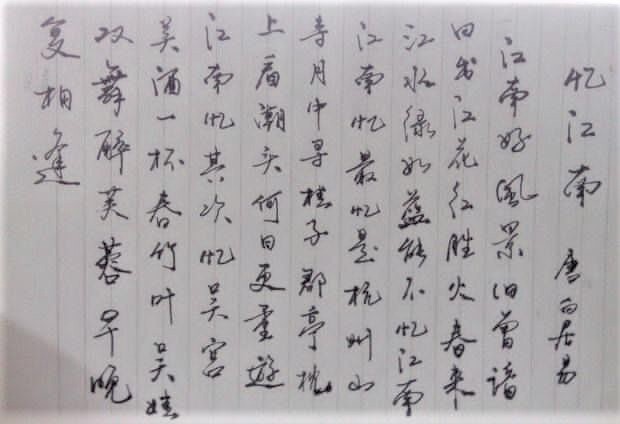 忆江南 唐 白居易
江南好 風景旧曾諳
日出江花红胜火 春来
江水绿如蓝 能不忆江南
江南忆 最忆是杭州 山
寺月中寻桂子 郡亭枕
上看潮头 何日更重遊
江南忆 其次忆吴宫
吴酒一杯春竹叶 吴娃
双舞醉芙蓉 早晚
复相逢